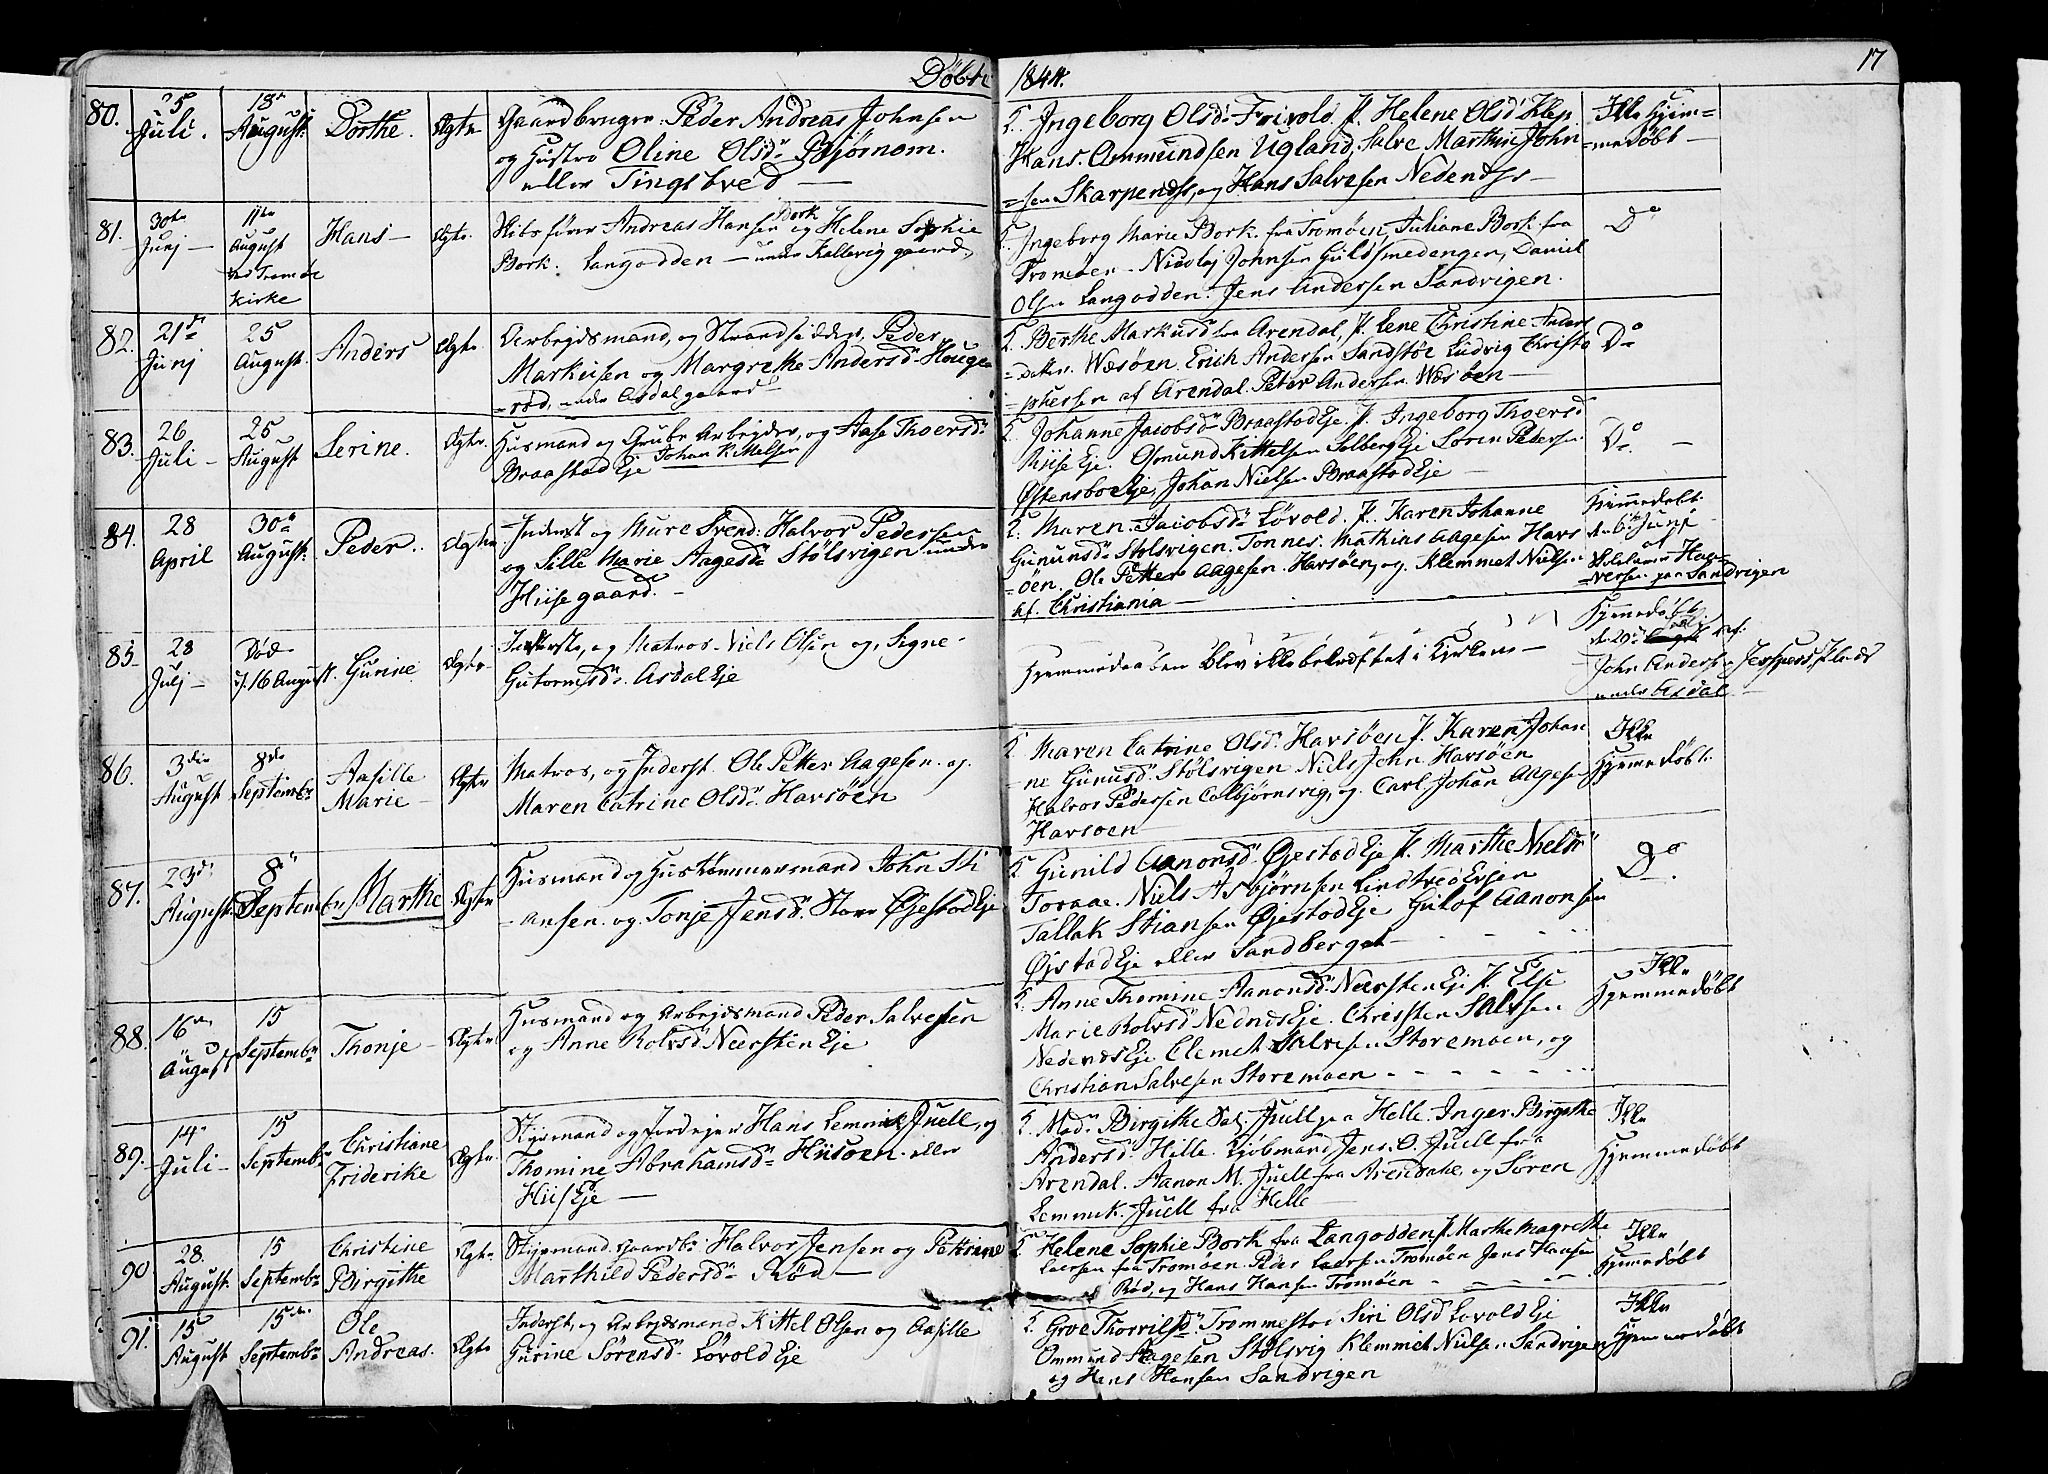 Döbte 1844. 17
80. 25 Juli. 18de August. Dorthe. Ægte
Gaardbruger. Peder Andreas Johnsen
og Hustro Oline Olsdr Bjørnom.
eller Tingsbred —
F. Ingeborg Olsdr Frivold. P. Helene Olsdr Klep
Hans. Ommundsen Ugland, Salve Marthin John
=sen Skarpenæs, og Hans Salvesen Nedenæs —
Ikke Hjem=
=medøbt —
81. 30te Junj — 11te August ved Tromøe Kirke Hans — Ægte.
Skibsfører Andreas Hansen Bork og Helene Sophie
Bork. Langodden — under Kallevig gaard
F. Ingeborg Marie Bork. fra Tromöen, Juliane Bork fra
Tromöen. Nicolej Johnsen Guldsmedengen, Daniel
Olsen Langodden. Jens Andersen Sandvigen.
Do
82. 21de Junj 25 August. Anders Ægte
Arbejdsmand, og Strandsidder, Peder
Markusen og Margrethe Andersdr Hauge
=rød, under Asdal gaard
F. Berthe Markusdr fra Arendal, P. Lene Christine Anders
=datter. Wæsöen. Erich Andersen Sandstøe Ludvig Christo
=phersen af Arendal. Peter Andersen Wæsöen —
Do
83. 26 Juli — 25 August Serine. Ægte.
Husmand og Grube Arbejder, og Aase Thoersdr
Braastad Eje Johan Kittelsen
F. Johanne Jacobsdr Braastad Eje. P. Ingeborg Thoersd
Riise Eje. Osmund Kittelsen Solberg Eje Søren Petersen
Østensboe Eje, Johan Nielsen Braastad Eje —
Do —
84. 28 April 30te August: Peder.. Ægte
Inderst og Mure Svend: Halvor Pedersen
og Sille Marie Aagesdr Stølsvigen under
Hiise gaard. —
F. Maren Jacobsdr Løvold. P. Karen Johanne
Gununsdr Stølsvigen. Tønnes. Mathias Aagesen Havs
=öen. Ole Petter Aagesen. Havsöen, og. Klemmet Nielsen
af. Christiania —
Hjemmedøbt
d. 6te Junj
af
Hav=
=versen paa Sandvigen
85 28 Julj — Død d. 16 August. Gunine Ægte
Inderste, og Matros. Niels Olsen og, Signe
Gutormsdr. Asdal Eje
Hjemmedaaben blev ikke bekræftet i Kirken —
Hjemmedøbt
d. 29de Juli af:
John Andersen Jespers Plads
under Asdal —
86. 3die August 8de Septembr Aasille Marie — Ægte
Matros, og Inderst. Ole Petter Aagesen. og
Maren Catrine Olsdr Havsöen
F. Maren Catrine Olsdr Havsöen P. Karen Johan
=ne Gunusdr Stølsvigen Niels John Havsöen
Halvor Pedersen Colbjørnsvig, og Carl Johan Aagesen
Havsöen
Ikke
Hjemmedøbt.
87. 23de August 8de Septembr Marthe Ægte
Husmand og Hustømmermand John Sti
=ansen og Tonje Jensdr. Store Øjestad Eje
F. Gunild Aanonsdr Øjestad Eje P. Marthe Nielsdr
Toraae. Niels Asbjørnsen Lindtved Ejen
Tallak Stiansen Øjestad Eje Gulof Aanonsen
Øjstad Eje eller Sandberget —
Do
88. 16de August 15 Septembr Thonje — Ægte
Husmand og Arbejdsmand Peder Salvesen
og Anne Rolvsd Neersten Eje
F. Anne Thomine Aanonsdr Neersten Eje P. Else
Marie Rolvsd Nednes Eje. Christen Salvsen
Nedenes Eje Clemet Salvesen Storemoen, og
Christian Salvesen Storemoen
Ikke
Hjemmedøbt
89. 14de Juli — 15 Septembr Christiane Friderike Ægte
Styrmand og Jordejer Hans Lemmik Juell, og
Thomine Abrahamsdr Hiisöen. eller
Hiis Eje —
F. Madm Birgithe Sal. Juell paa Helle. Inger Birgithe
Andersdr Helle. Kjöbmand Jens. O. Juell fra
Arendal. Aanon M. Juell fra Arendal og Søren
Lemmik. Juell fra Helle
Ikke
Hjemmedøbt
90 28. August. 15 Septembr Christine Birgithe Ægte
Styrmand. Gaardbr. Halvor Jensen og Pettrine
Marthild Pedersdr Rød —
F. Helene Sophie Bork fra Langodden P. Marthe Magrethe
Larsen fra Tromøen. Peder Larsen Tromøen Jens Hansen
Rød, og Hans Hansen Tromøen
Ikke
Hjemmedøbt
91. 15 August 15de Septembr Ole Andreas. Ægte
Inderst, og Arbejdsmand Kittel Olsen og Aasille
Gurine Sörensdr Løvold Eje
F. Groe Thorvilsdr Trommestad Siri Olsd Lovold Eje
Ommund Aagesen Stølsvig Klemmet Nielsen Sandvigen
og Hans Hansen Sandvigen
Ikke
Hjemmedøbt